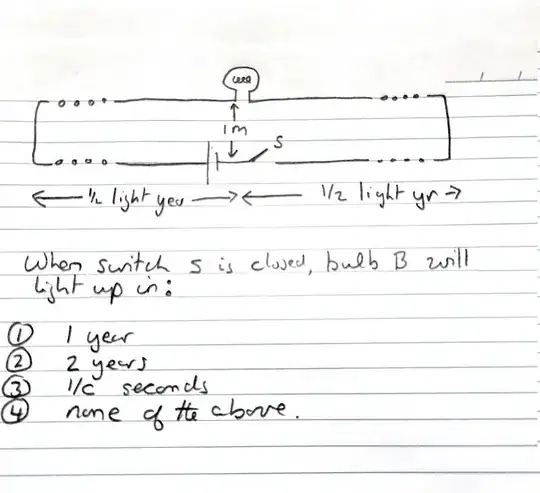 1m
S
½ light year
1/2 light yr
When switch S is closed, bulb B will
light up in:
① 1 year
② 2 years
③ 1/c seconds
④ none of the above.